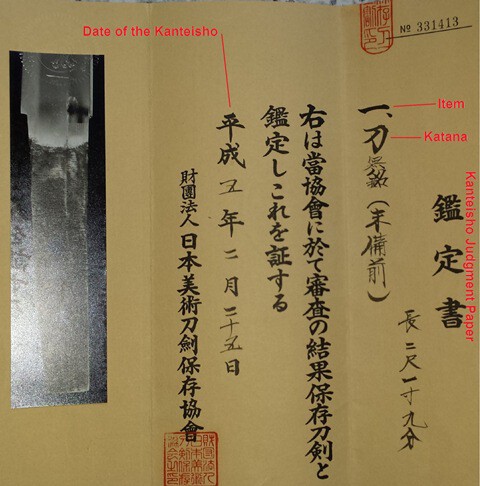 Date of the Kanteisho
No 331413
Item
Katana
Kanteisho Judgment Paper
鑑定書
長二尺一寸九分
一、刀 無銘(末備前)
右は當協會に於て審査の結果保存刀剣と
鑑定しこれを証する
平成五年二月二十五日
財團法人日本美術刀劍保存協會